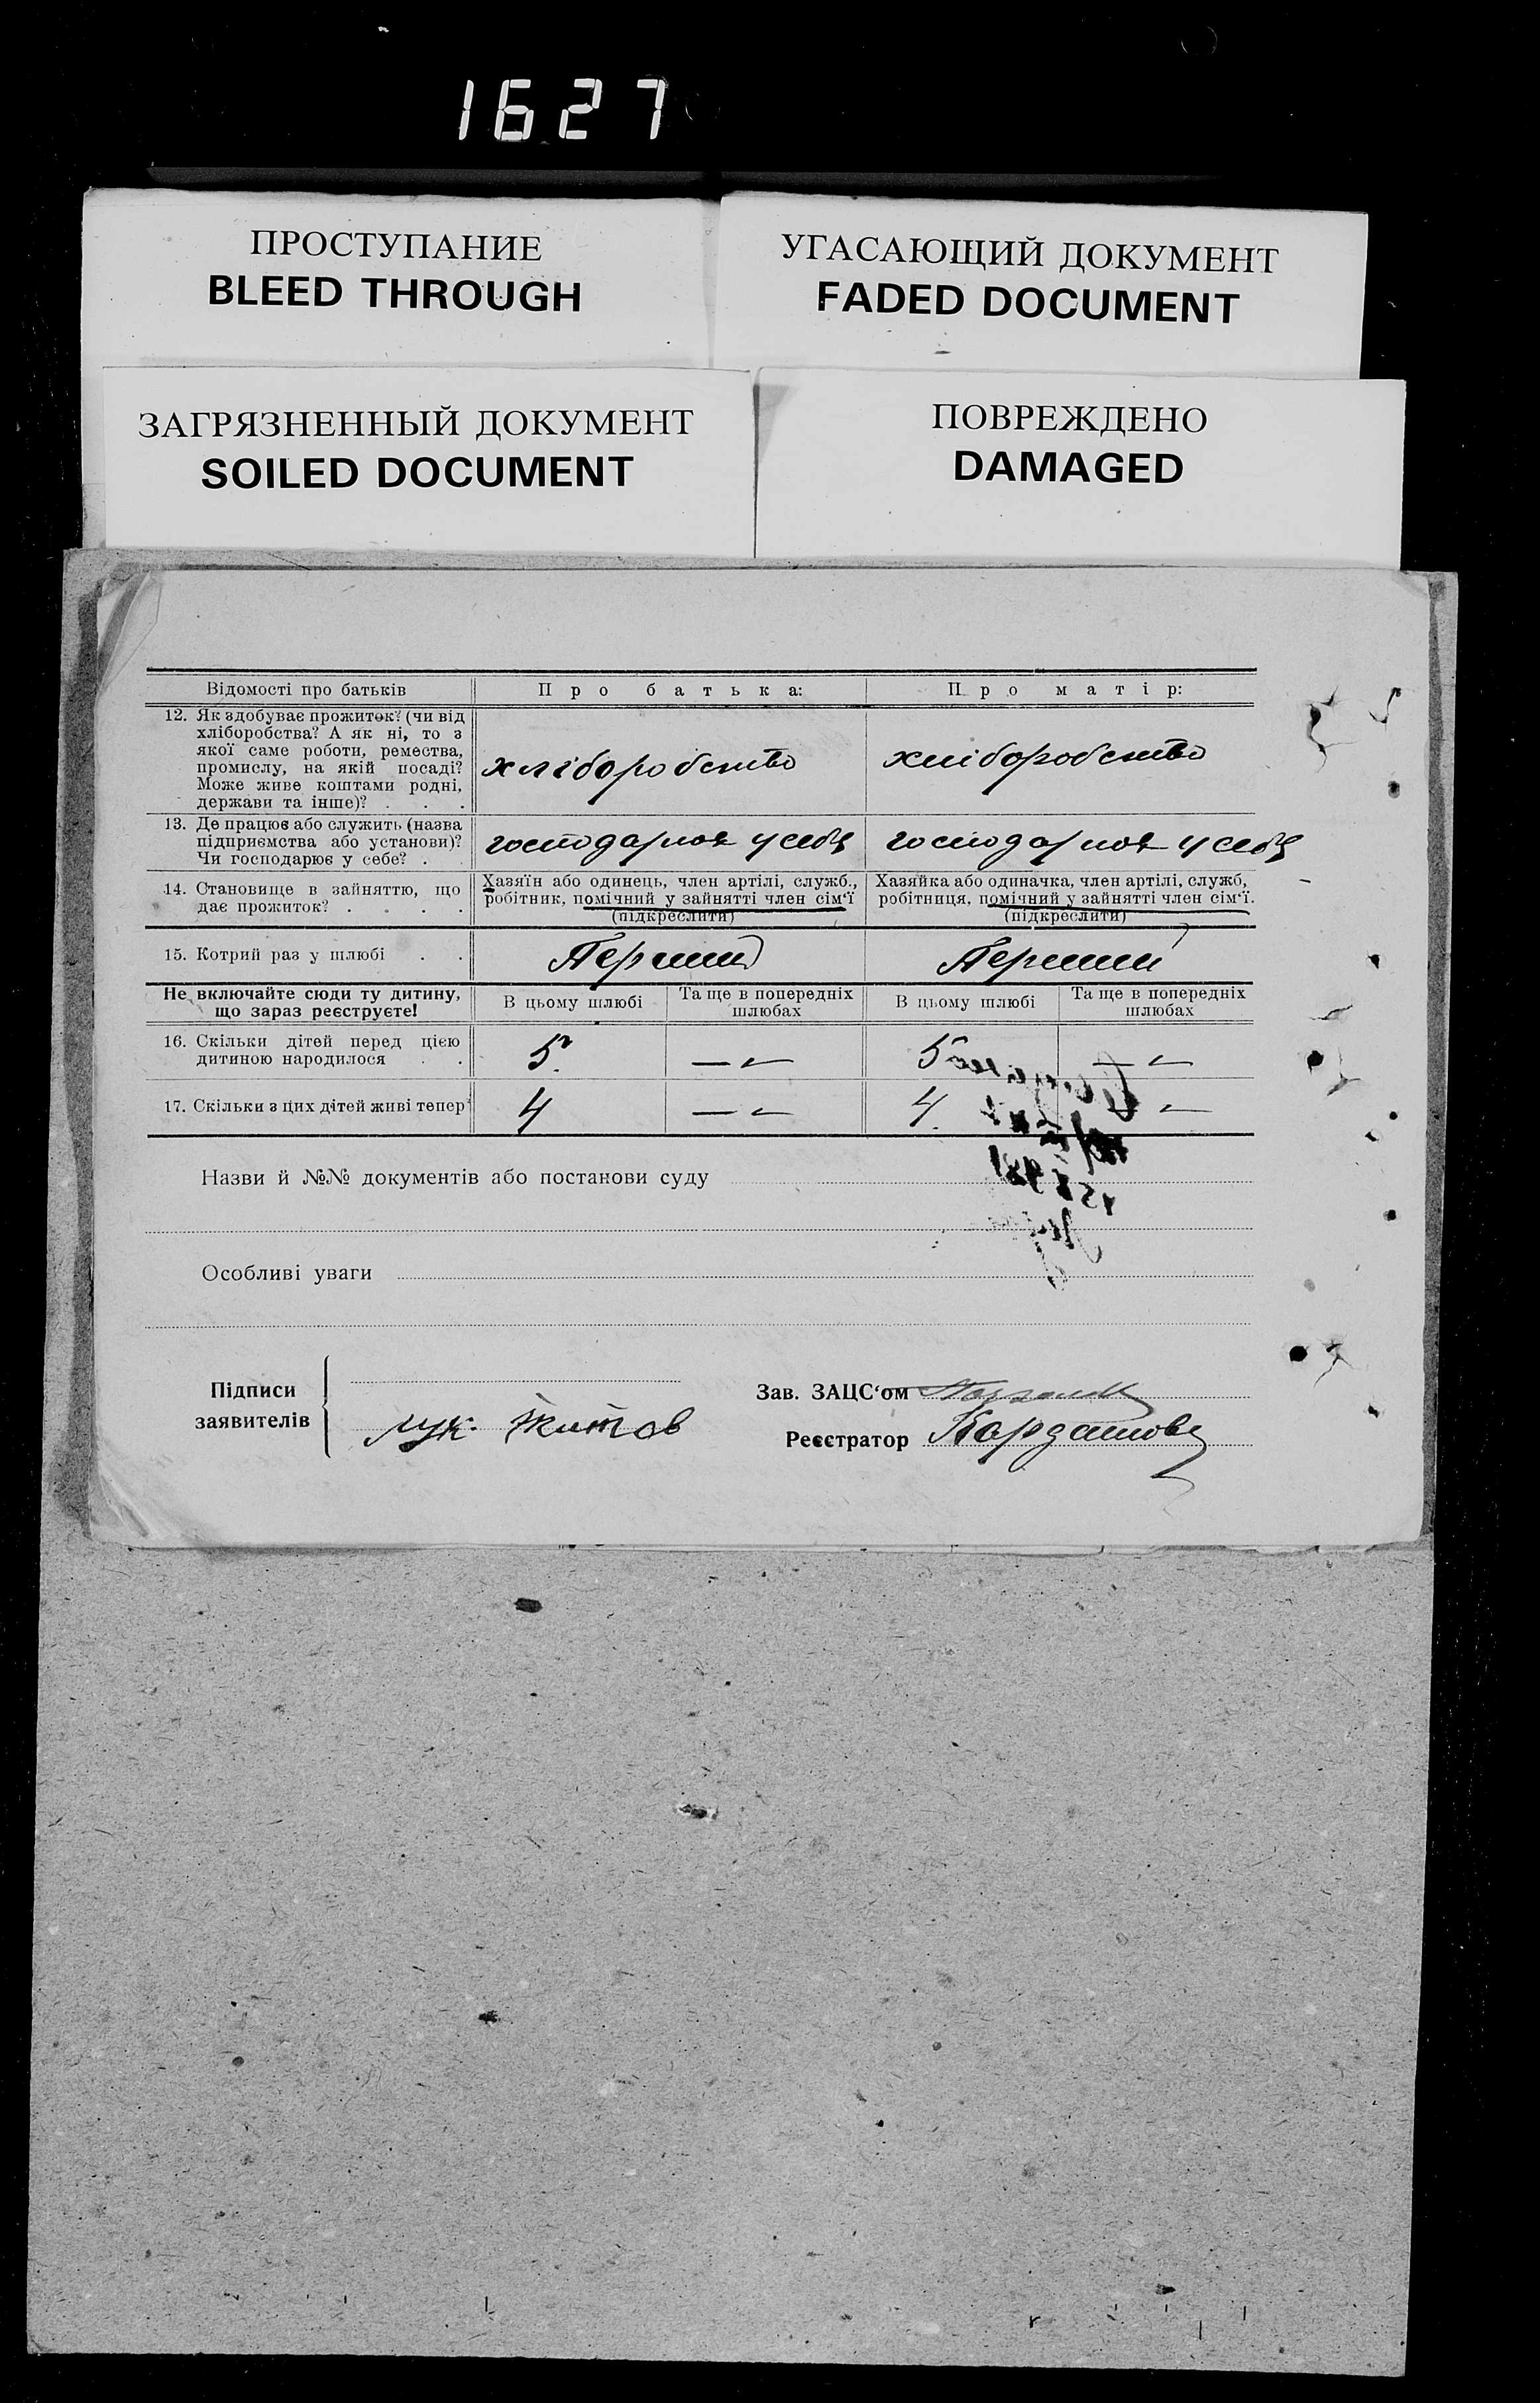 1627
ПРОСТУПАНИЕ
BLEED THROUGH
УГАСАЮЩИЙ ДОКУМЕНТ
FADED DOCUMENT
ЗАГРЯЗНЕННЫЙ ДОКУМЕНТ
SOILED DOCUMENT
ПОВРЕЖДЕНО
DAMAGED
Відомості про батьків
Про батька:
Про матір:
12. Як здобуває прожиток? (чи від
хліборобства? А як ні, то з
якої саме роботи, ремества,
промислу, на якій посаді?
Може живе коштами родні,
держави та інше)? . . .
хліборобство
хліборобство
13. Де працює або служить (назва
підприємства або установи)?
Чи господарює у себе? . .
господарює у себе
господарює у себе
14. Становище в зайняттю, що
дає прожиток? . . . .
Хазяїн або одинець, член артілі, служб.,
робітник, помічний у зайнятті член сім'ї
(підкреслити)
Хазяйка або одиначка, член артілі, служб,
робітниця, помічний у зайнятті член сім'ї.
(підкреслити)
15. Котрий раз у шлюбі . .
Перший
Перший
Не включайте сюди ту дитину,
що зараз реєструєте!
В цьому шлюбі
Та ще в попередніх
шлюбах
В цьому шлюбі
Та ще в попередніх
шлюбах
16. Скільки дітей перед цією
дитиною народилося . .
5
5
17. Скільки з цих дітей живі тепер
4
4
Назви й №№ документів або постанови суду
Особливі уваги
Підписи
заявителів
Зав. ЗАЦС'ом
Реєстратор